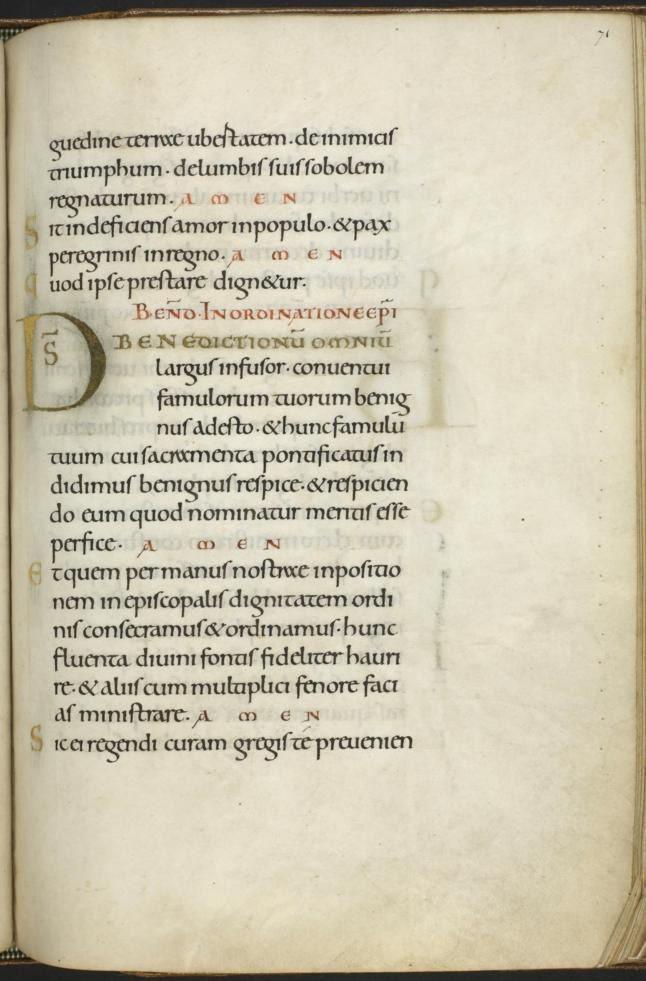 71
guedine terrae ubestatem. de inimicis
triumphum. de lumbis suis sobolem
regnaturum. AMEN
Sit indeficiens amor in populo. & pax
peregrinis in regno. AMEN
Quod ipse prestare dign&ur.
BEND̄. IN ORDINATIONE EP̄I
D̄S BENEDICTIONŪ OMNIŪ
largus infusor. conventui
famulorum tuorum benig
nus adesto. & hunc famulū
tuum cui sacramenta pontificatus in
didimus benignus respice. & respicien
do eum quod nominatur meritis esse
perfice. AMEN
Et quem per manus nostrae inpositio
nem in episcopalis dignitatem ordi
nis consecramus & ordinamus. hunc
fluenta divini fontis fideliter hauri
re. & aliis cum multiplici fenore faci
as ministrare. AMEN
Sic ei regendi curam gregis te prevenien